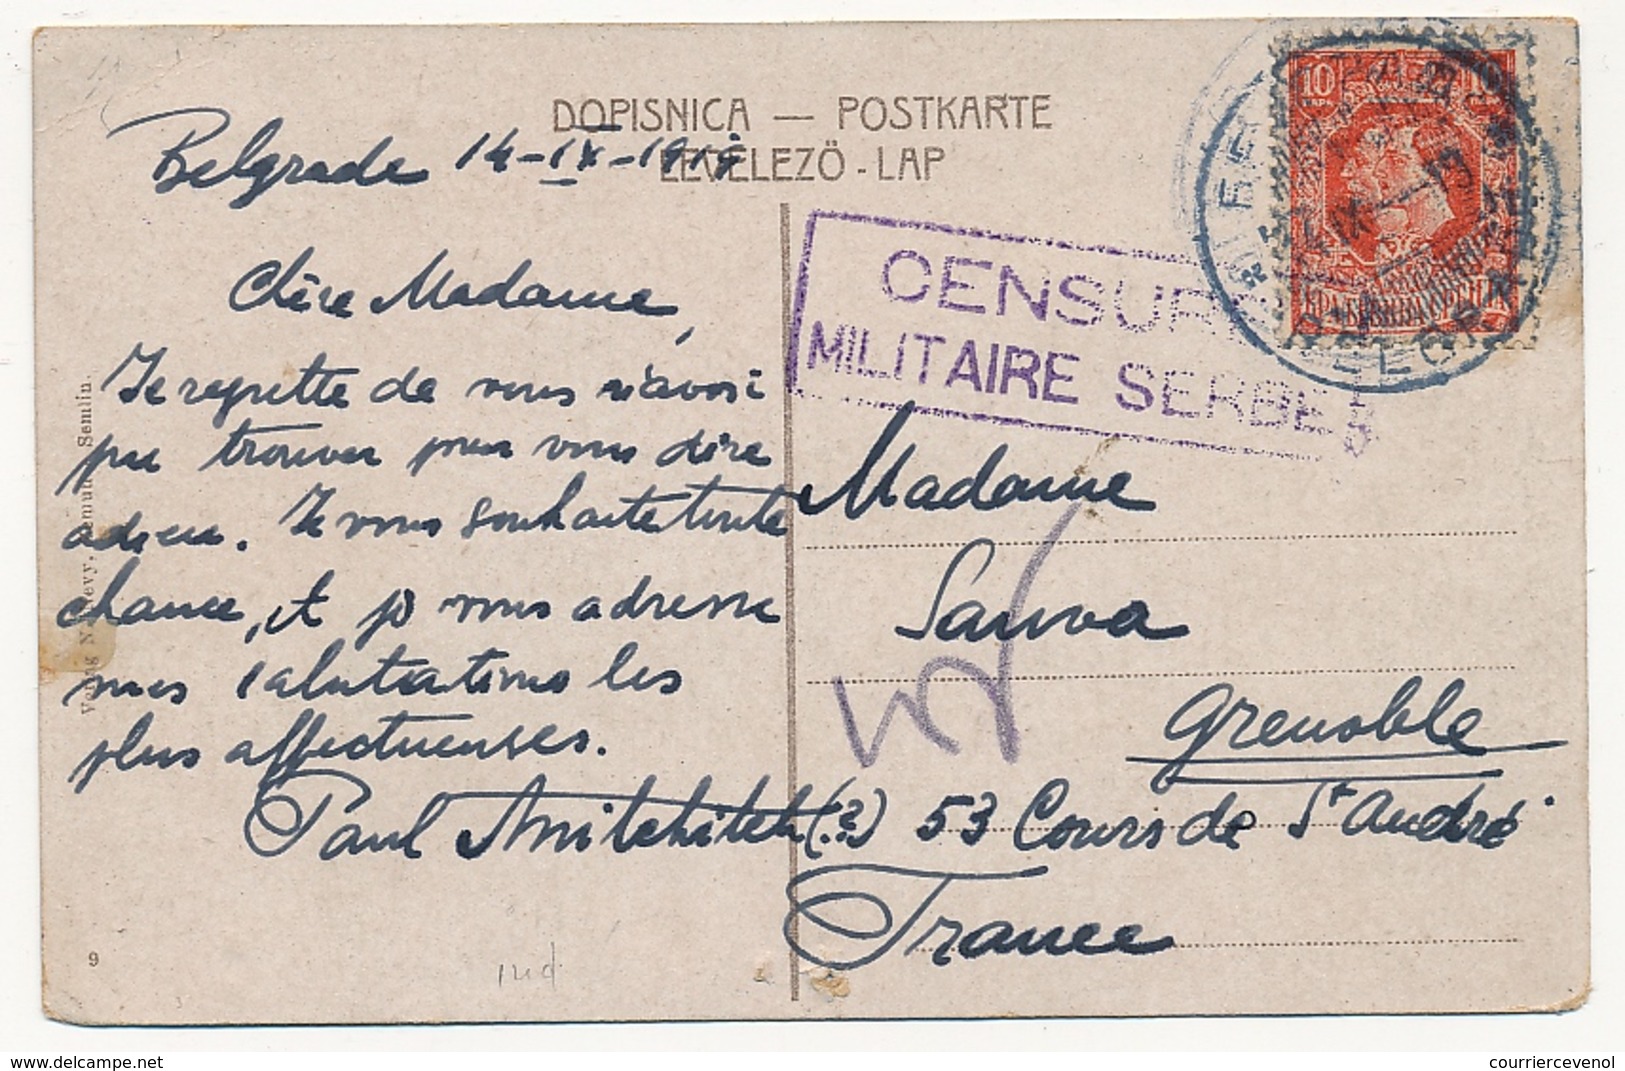 DOPISNICA — POSTKARTE
LEVELEZÖ - LAP
Belgrade 14-IX-1919
Chère Madame,
Je regrette de vous n'avoir
pu trouver pour vous dire
adieu. Je vous souhaite toute
chance, et je vous adresse
mes salutations les
plus affectueuses.
Paul
CENSURE
MILITAIRE SERBE
10
Madame
Sauva
Grenoble
(2) 53 Cours de St André
France
Semlin.
9
courriercevenol